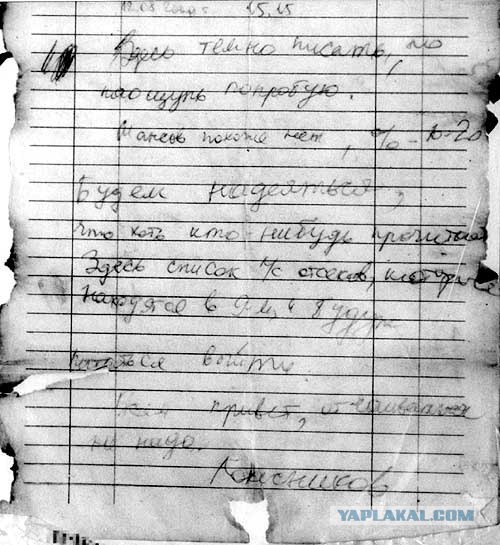 12.08.2000 г 15.15
Здесь темно писать, но
наощупь попробую.
Шансов похоже нет, % - 10-20
Будем надеяться,
что хоть кто-нибудь прочитает
Здесь список л/с отсеков, которые
находятся в 9-м и будут
пытаться выйти.
Всем привет, отчаиваться
не надо.
Колесников
YAPLAKAL.COM